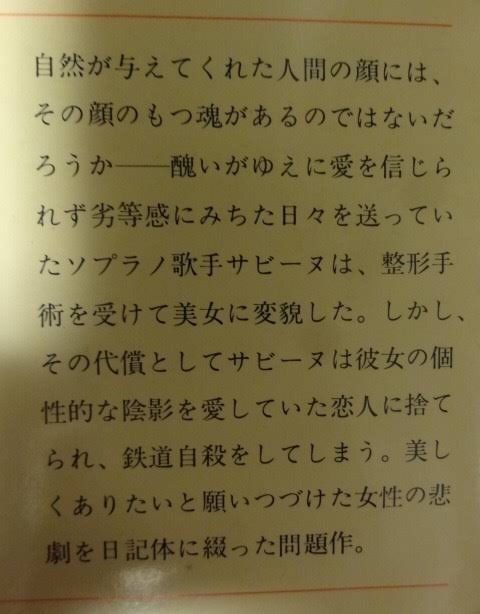 自然が与えてくれた人間の顔には、
その顔のもつ魂があるのではないだ
ろうか──醜いがゆえに愛を信じら
れず劣等感にみちた日々を送ってい
たソプラノ歌手サビーヌは、整形手
術を受けて美女に変貌した。しかし、
その代償としてサビーヌは彼女の個
性的な陰影を愛していた恋人に捨て
られ、鉄道自殺をしてしまう。美し
くありたいと願いつづけた女性の悲
劇を日記体に綴った問題作。